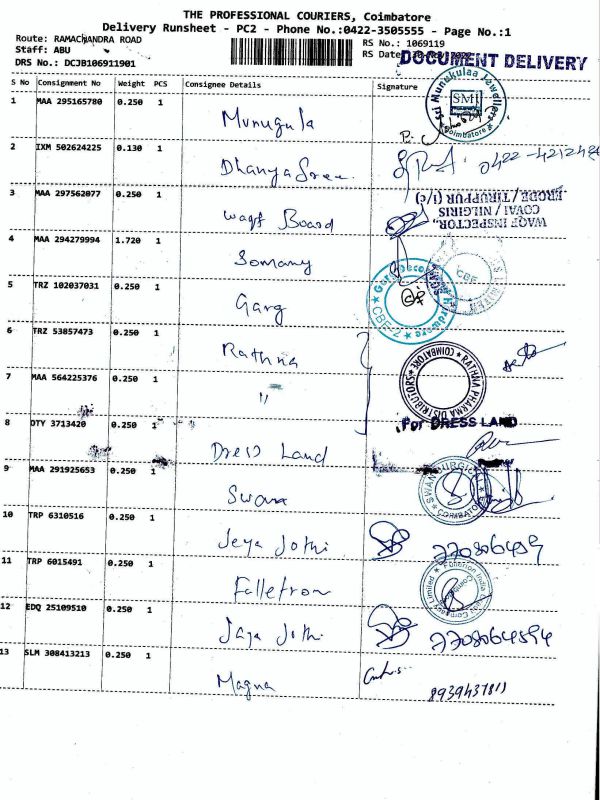 THE PROFESSIONAL COURIERS, Coimbatore
Delivery Runsheet - PC2 - Phone No.:0422-3505555 - Page No.:1
Route: RAMACHANDRA ROAD
RS No.: 1069119
Staff: ABU
RS Date:
DOCUMENT DELIVERY
DRS No.: DCJB106911901
S No Consignment No Weight PCS Consignee Details Signature
1 MAA 295165780 0.250 1 Munugula
Sri Munukulaa Jewellers
SMJ
Coimbatore
2 IXM 502624225 0.130 1 Dhanya Sree
0422-4212484
3 MAA 297562077 0.250 1 waqf Board
WAQF INSPECTOR,
COVAI / NILGIRIS
ERODE / TIRUPPUR (I/c)
4 MAA 294279994 1.720 1 Somany
CBE
5 TRZ 102037031 0.250 1 Garg
Hardware
CBE-2
6 TRZ 53857473 0.250 1 Rathna
RATHNA PHARMA DISTRIBUTORS
COIMBATORE
7 MAA 564225376 0.250 1 "
8 DTY 3713420 0.250 1 Dress Land
For DRESS LAND
9 MAA 291925653 0.250 1 Swara
10 TRP 6310516 0.250 1 Jeya Jothi
11 TRP 6015491 0.250 1 Falletron
12 EDQ 25109510 0.250 1 Jaya Jothi
7708064594
13 SLM 308413213 0.250 1 Magna